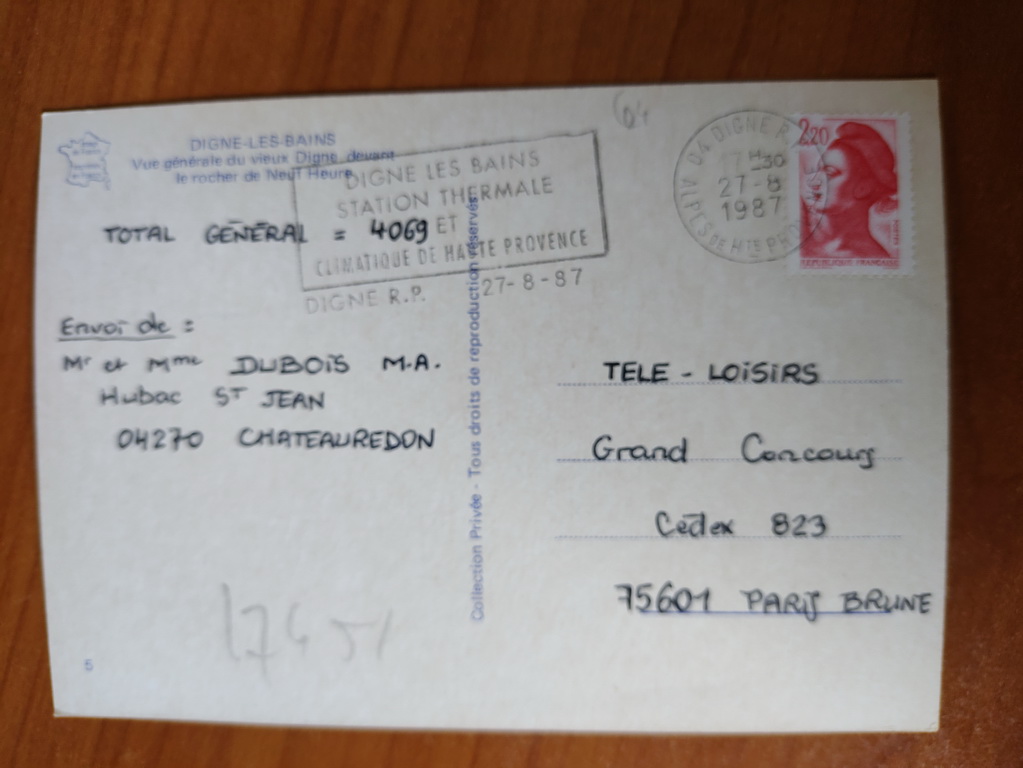 DIGNE-LES-BAINS
Vue générale du vieux Digne devant
le rocher de Neuf Heure
04
04 DIGNE R.P.
17H30
27-8
1987
ALPES DE HTE PROVENCE
2,20
REPUBLIQUE FRANÇAISE
DIGNE LES BAINS
STATION THERMALE
ET
CLIMATIQUE DE HAUTE PROVENCE
DIGNE R.P. 27-8-87
TOTAL GÉNÉRAL = 4069
Envoi de :
Mr et Mme DUBOIS M.A.
Hubac ST JEAN
04270 CHATEAUREDON
Collection Privée - Tous droits de reproduction réservés
TELE - LOISIRS
Grand Concours
Cédex 823
75601 PARIS BRUNE
5